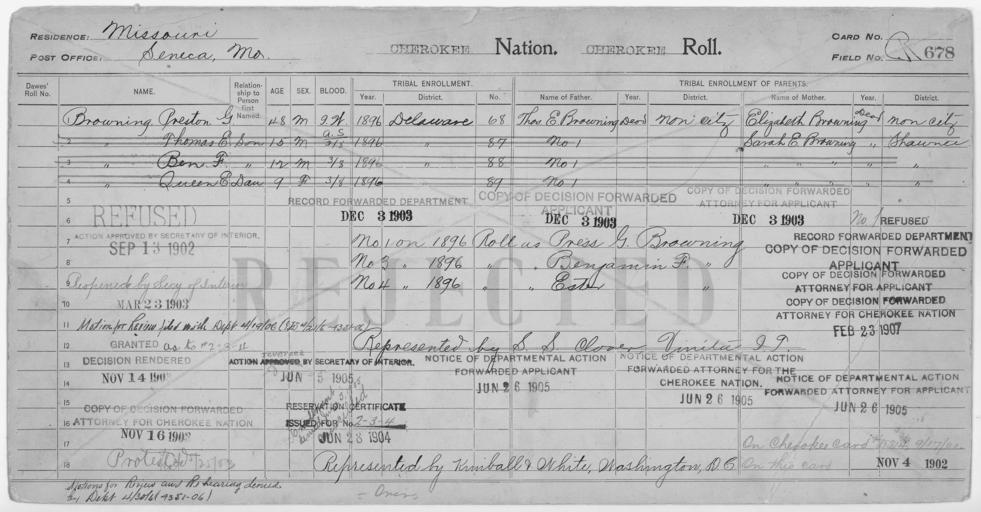 RESIDENCE: Missouri
POST OFFICE: Seneca, Mo.
CHEROKEE Nation. CHEROKEE Roll.
CARD NO.
FIELD NO. R 678
Dawes' Roll No. NAME. Relationship to Person first Named. AGE SEX. BLOOD. TRIBAL ENROLLMENT. TRIBAL ENROLLMENT OF PARENTS.
Year. District. No. Name of Father. Year. District. Name of Mother. Year. District.
Browning Preston G 48 M I.W. 1896 Delaware 68 Thos E Browning Dead non citz Elizabeth Browning Dead non citz
2 " Thomas E. Son 15 M 3/8 1896 " 87 No 1 Sarah E Browning " Shawnee
3 " Ben. F. " 12 M 3/8 1896 " 88 No 1 " " " " "
4 " Queen E Dau 9 F 3/8 1896 89 No 1 " " " " "
5 RECORD FORWARDED DEPARTMENT. COPY OF DECISION FORWARDED APPLICANT COPY OF DECISION FORWARDED ATTORNEY FOR APPLICANT
6 REFUSED DEC 3 1903 DEC 3 1903 DEC 3 1903 No 1 REFUSED
7 ACTION APPROVED BY SECRETARY OF INTERIOR. No 1 on 1896 Roll as Press G. Browning RECORD FORWARDED DEPARTMENT
SEP 13 1902 COPY OF DECISION FORWARDED APPLICANT
8 No 3 " 1896 " " Benjamin F. "
COPY OF DECISION FORWARDED ATTORNEY FOR APPLICANT
9 Reopened by Secy of Interior No 4 " 1896 " " "
REJECTED
10 MAR 23 1903 COPY OF DECISION FORWARDED ATTORNEY FOR CHEROKEE NATION
FEB 23 1907
11 Motion for Review filed with Dept
12 GRANTED as to #2-3-4 Represented by S. S. Vinita I.T.
13 DECISION RENDERED ACTION APPROVED BY SECRETARY OF INTERIOR. NOTICE OF DEPARTMENTAL ACTION FORWARDED APPLICANT NOTICE OF DEPARTMENTAL ACTION FORWARDED ATTORNEY FOR THE CHEROKEE NATION. NOTICE OF DEPARTMENTAL ACTION FORWARDED ATTORNEY FOR APPLICANT
14 NOV 14 190 JUN 5 1905 JUN 26 1905 JUN 26 1905 JUN 26 1905
15 COPY OF DECISION FORWARDED RESERVATION CERTIFICATE
16 ATTORNEY FOR CHEROKEE NATION ISSUED FOR No. 2-3-4
17 NOV 16 190 JUN 28 1904 On Cherokee card
18 Protest Represented by Kimball & White, Washington, D.C. On this card NOV 4 1902
Motions for Review and Rehearing denied
by Dept